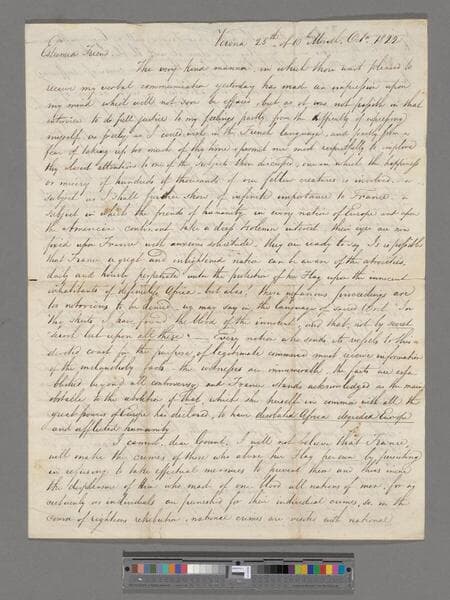 Verona 25th of 10th Month, Oct. 1822
Esteemed Friend
The very kind manner, in which thou wast pleased to
receive my verbal communication yesterday has made an impression upon
my mind which will not soon be effaced but as it was not possible in that
interview to do full justice to my feelings partly from the difficulty of expressing
myself as freely as I could wish in the French language, and partly from a
fear of taking up too much of thy time permit me most respectfully to implore
thy closest attention to one of the subjects then discussed, one in which the happiness
or misery of hundreds of thousands of our fellow creatures is involved, a
subject as I shall further show, of infinite importance to France, a
subject in which the friends of humanity in every nation of Europe and upon
the American continent take a deep & solemn interest their eyes are now
fixed upon France with anxious solicitude, they are ready to say Is it possible
that France a great and enlightened nation can be aware of the atrocities
daily and hourly perpetrated under the protection of her Flag upon the innocent
inhabitants of defenceless Africa but alas! these infamous proceedings are
too notorious to be denied, we may say in the language of sacred Writ. In
thy skirts I have found the blood of the innocent, and that not by secret
search but upon all these. Every nation who sends its vessels to this
devoted coast for the purpose of legitimate commerce must receive information
of the melancholy facts the witnesses are innumerable, the facts are esta
blished beyond all controversy and France stands acknowledged as the main
obstacle to the abolition of that, which she herself in common with all the
great powers of Europe has declared, to have desolated Africa degraded Europe
and afflicted humanity.
I cannot, dear Count, I will not believe that France
will make the crimes of those who abuse her Flag her own by persisting
in refusing to take effectual measures to prevent them and thus incur
the displeasure of Him who made of one blood all nations of men, for as
certainly as individuals are punished for their individual crimes, so, in the
course of righteous retribution, national crimes are visited with national